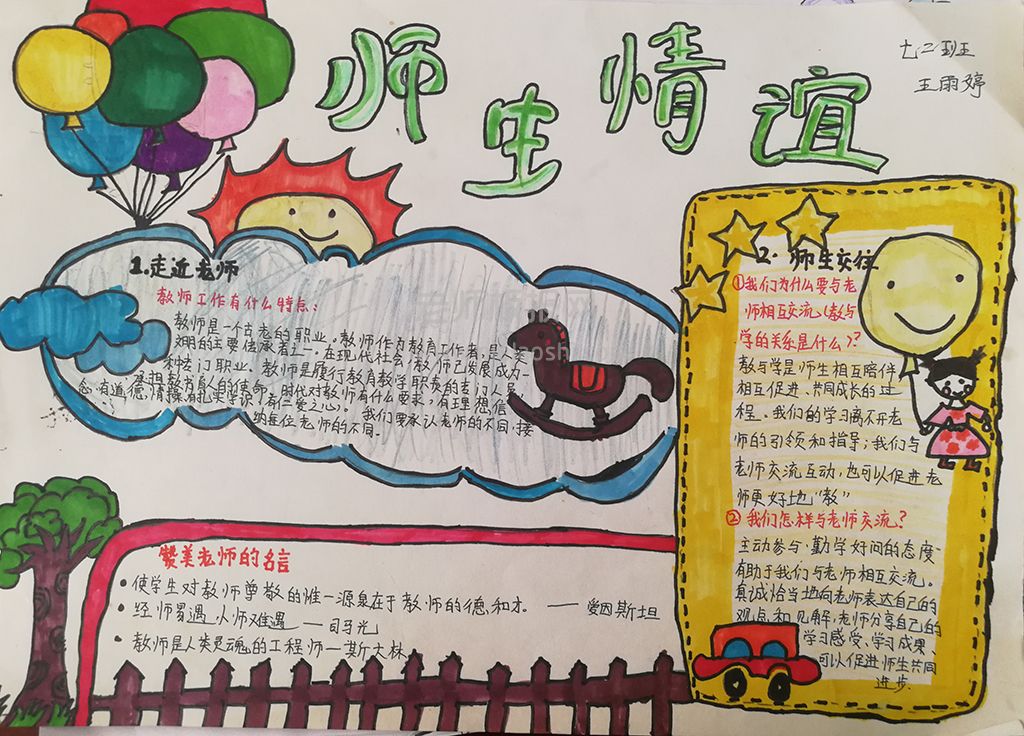 师生情谊
七二班
王雨婷
1.走近老师
教师工作有什么特点:
教师是一个古老的职业。教师作为教育工作者,是人类
文明的主要传承者之一。在现代社会,教师已发展成为一
种专门职业。教师是履行教育教学职责的专门人员,
承担教书育人的使命。时代对教师有什么要求,有理想信
念,有道德情操,有扎实学识,有仁爱之心。我们要承认老师的不同,接
纳每位老师的不同.
赞美老师的名言
• 使学生对教师尊敬的惟一源泉在于教师的德和才。——爱因斯坦
• 经师易遇,人师难遇——司马光
• 教师是人类灵魂的工程师—斯大林
2.师生交往
①我们为什么要与老
师相互交流(教与
学的关系是什么)?
教与学是师生相互陪伴
相互促进、共同成长的过
程。我们的学习离不开老
师的引领和指导;我们与
老师交流互动,也可以促进老
师更好地“教”
②我们怎样与老师交流?
主动参与、勤学好问的态度
有助于我们与老师相互交流。
真诚恰当地向老师表达自己的
观点和见解,老师分享自己的
学习感受、学习成果、
可以促进师生共同
进步.